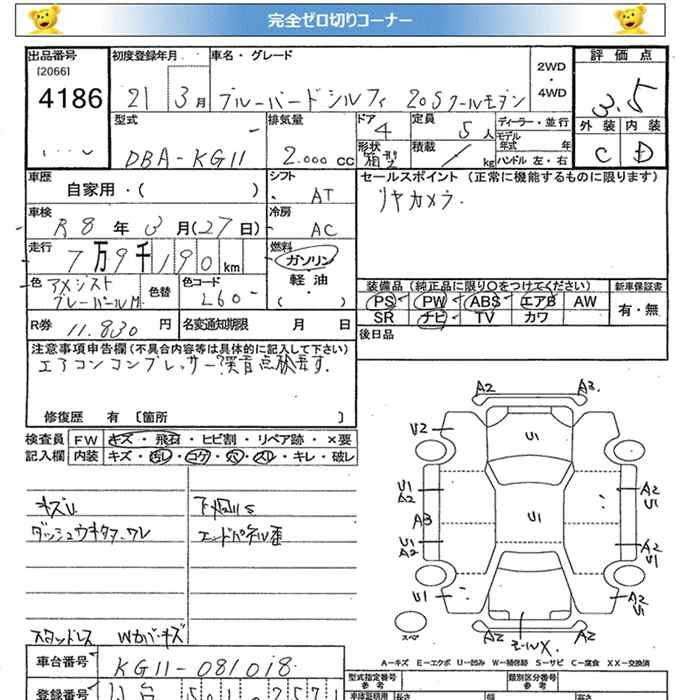 完全ゼロ切りコーナー
出品番号 [2066] 4186
初度登録年月 21 3月
車名・グレード ブルーバードシルフィ 20Sクールモダン
2WD・4WD
評価点 3.5
外装 内装
C D
型式 DBA-KG11
排気量 2.000 CC
ドア 4
形状 箱型
定員 5人
積載 kg
ディーラー・並行
モデル年式 年
ハンドル 左・右
車歴 自家用・( )
シフト AT
セールスポイント (正常に機能するものに限ります)
リヤカメラ.
車検 R8年3月(27日)
冷房 AC
走行 7万9千190km
燃料 ガソリン 軽油 ( )
色 アメジストグレーパールM
色替
色コード L60
装備品(純正品に限り○をつけてください)
PS PW ABS エアB AW
SR ナビ TV カワ
新車保証書 有・無
R券 11.830円
名変通知期限 月 日
後日品
注意事項申告欄(不具合内容等は具体的に記入して下さい)
エアコンコンプレッサー?異音点検
修復歴 有 〔箇所 〕
検査員記入欄
FW キズ・飛石・ヒビ割・リペア跡・×要
内装 キズ・汚レ・コゲ・穴・スリ・キレ・破レ
キズU
ダッシュウキタワレ
エンドパネル歪
スタッドレス Wカバーキズ
A2 A3
V2
U1
U1 A2
A2 U1
U1
A3
U1 A2
A2 U1
U1
A2 U1
スペア
A2 A2
A-キズ E-エクボ U-凹み W-補修跡 S-サビ C-腐食 XX-交換済
車台番号 KG11-081018
型式指定番号 参考
類別区分番号 参考
登録番号
長さ 幅 高さ